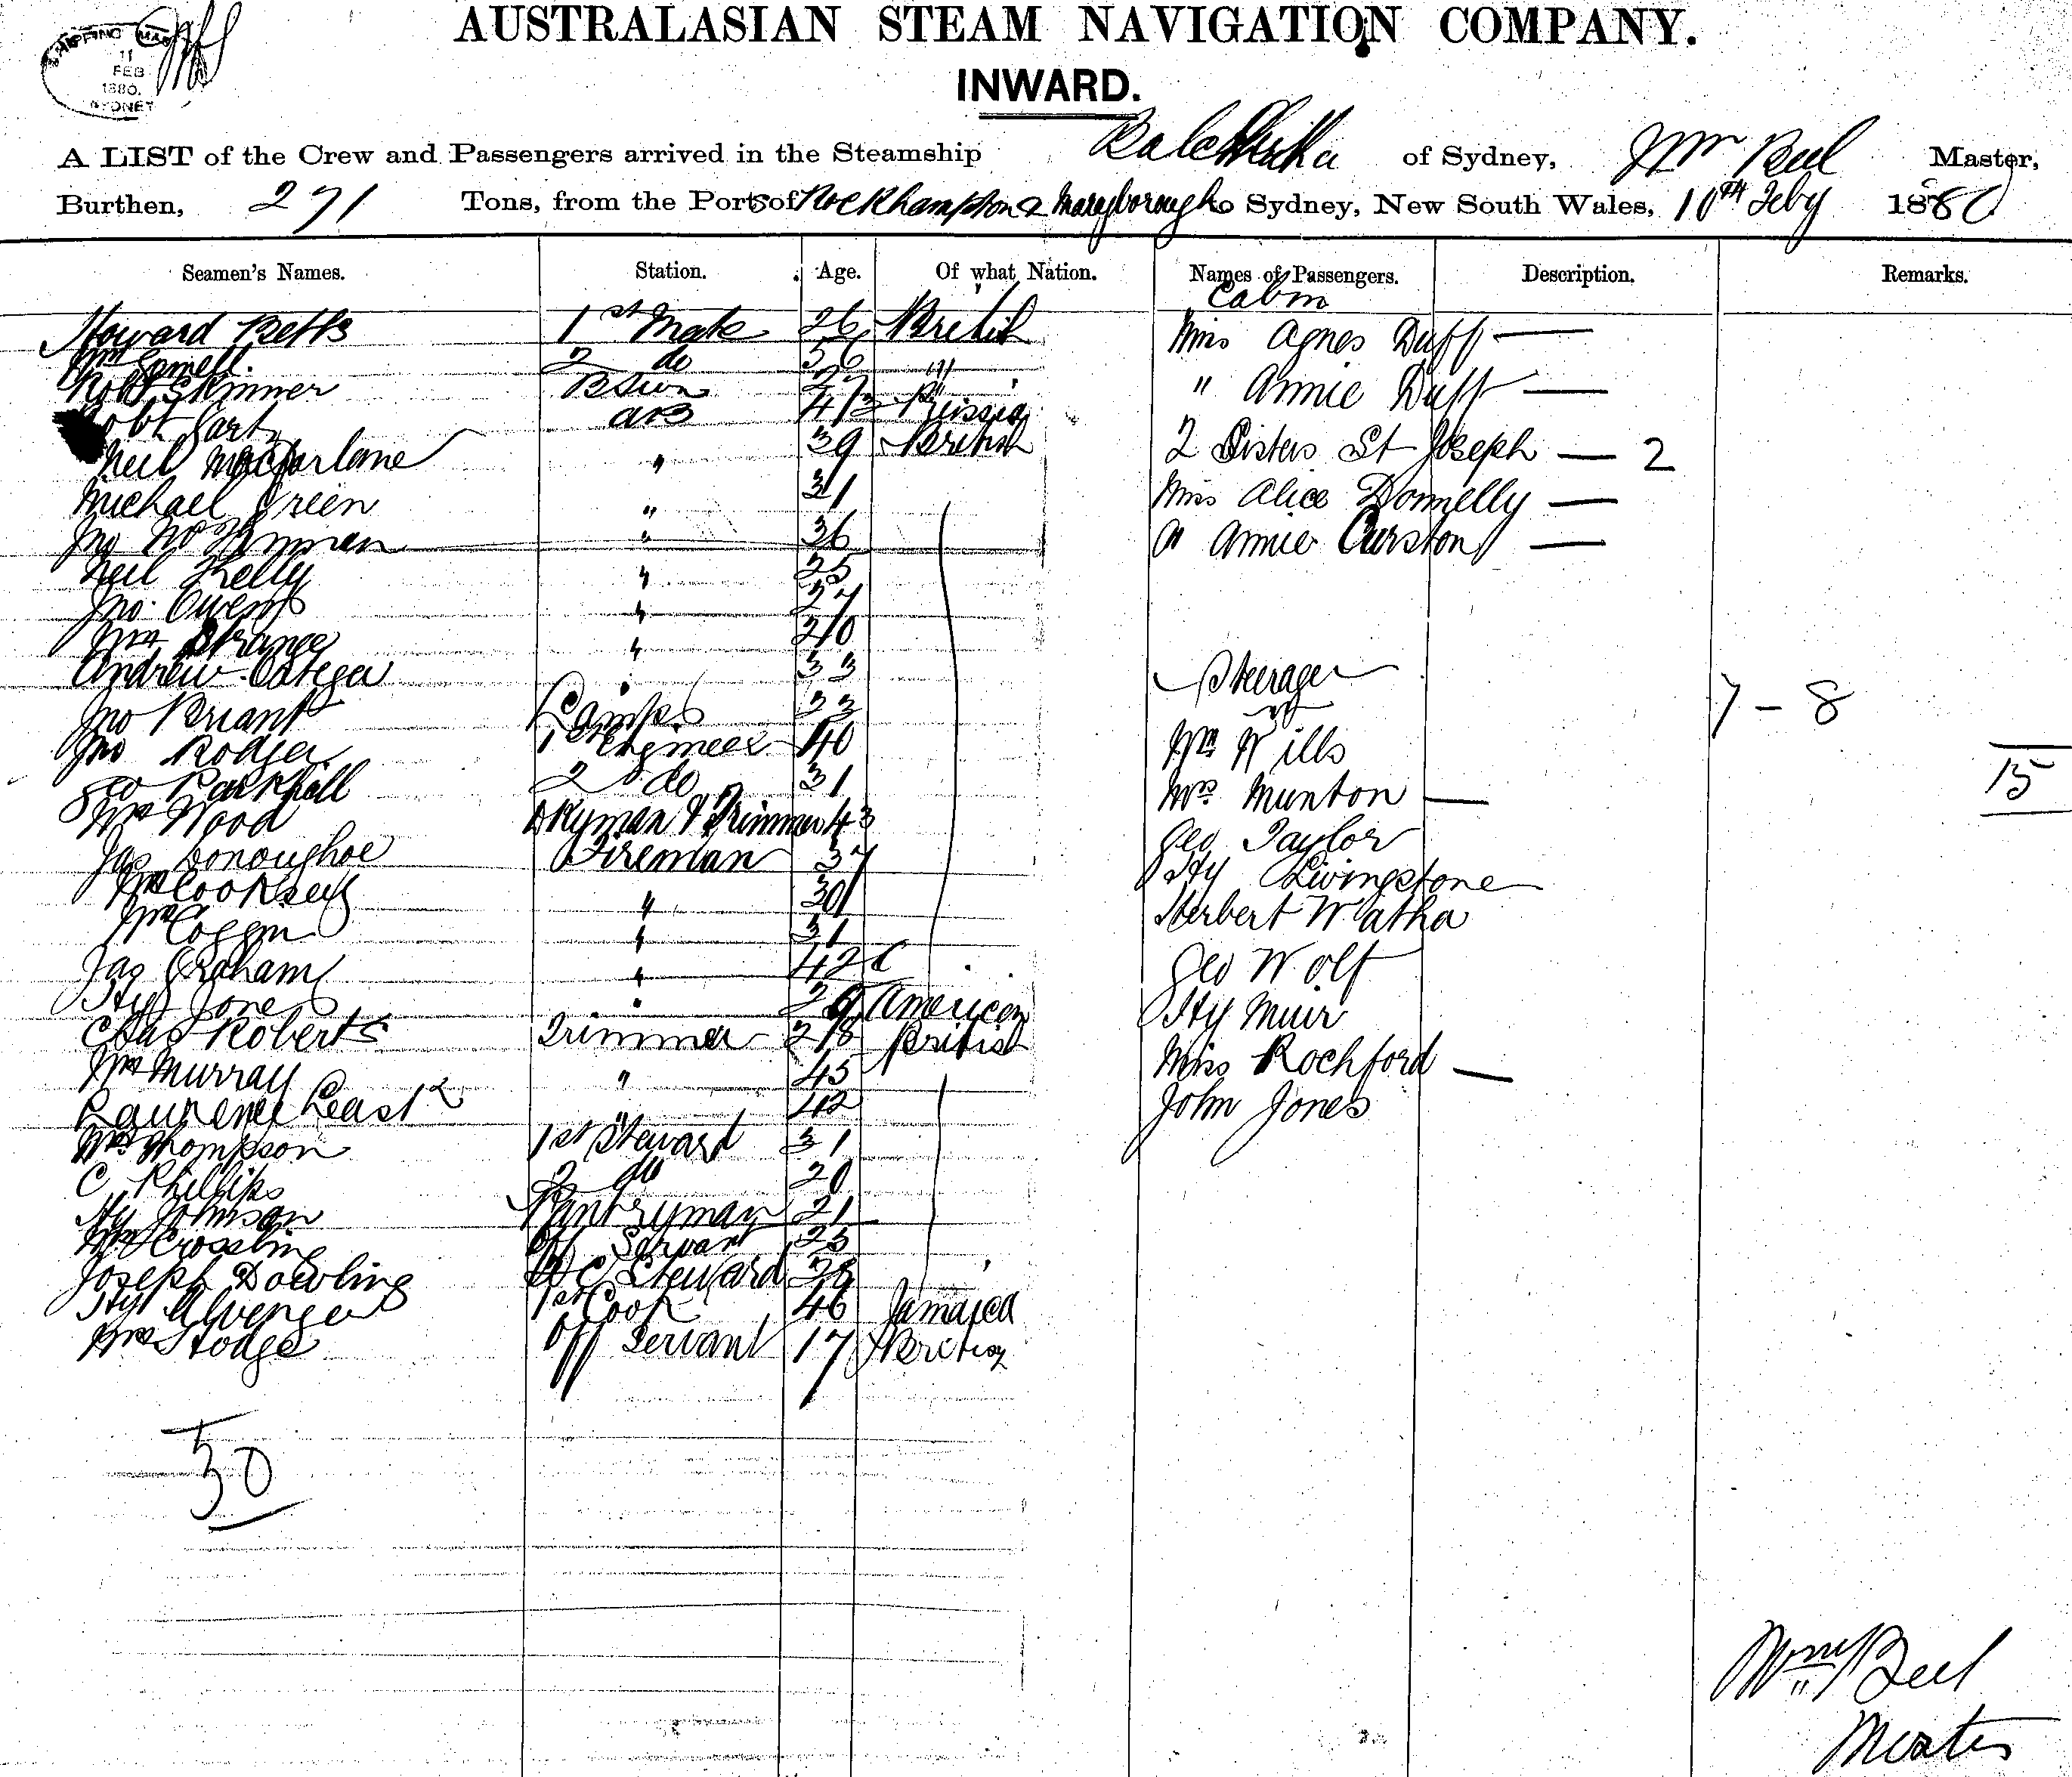 SHIPPING MAS
11
FEB
1880.
SYDNEY
AUSTRALASIAN STEAM NAVIGATION COMPANY.
INWARD.
A LIST of the Crew and Passengers arrived in the Steamship of Sydney, Wm Beel Master,
Burthen, 271 Tons, from the Ports of Rockhampton & Maryborough to Sydney, New South Wales, 10TH Feby 1880
Seamen's Names. Station. Age. Of what Nation. Names of Passengers. Description. Remarks.
Cabin
Howard Betts 1st Mate 26 British Miss Agnes Duff —
2 do 36 "
Robt Skinner BSwn 27 " " Annie Duff —
Robt AB Russia
Neil Macfarlane " 39 British 2 Sisters St Joseph — 2
Michael Green " 31 Miss Alice Donnelly —
Jno " 36 " Annie Curston —
Neil Kelly " 25
Jno. Owens " 27
Wm Strange "
Andrew " 33 Steerage
Jno Briant Lamps 7 - 8
Jno Rodger 1st Engineer 40 Wm Wills 15
Geo Parkhill 2 do 31 Mrs Munton —
Wm Wood Dkyman & Trimmer 43 Geo Taylor
Jas Donoughoe Fireman 37 Hy Livingstone
Wm Cooksey " 30 Herbert Watha
Wm Coggin " 31
Jas Graham " 42 Geo Wolf
Hy Jones " 29 American Hy Muir
Chas Roberts Trimmer 28 British
Wm Murray " 45 Miss Rochford —
Laurence " 42 John Jones
Wm Thompson 1st Steward 31
C Phillips 2 do 20
Hy Johnson Pantryman 21
Wm Crossling Off Servant 23
Joseph Dowling Steward 28
Hy 1st Cook 46 Jamaica
Wm Hodge Off Servant 17 British
30
Wm Beel
Master